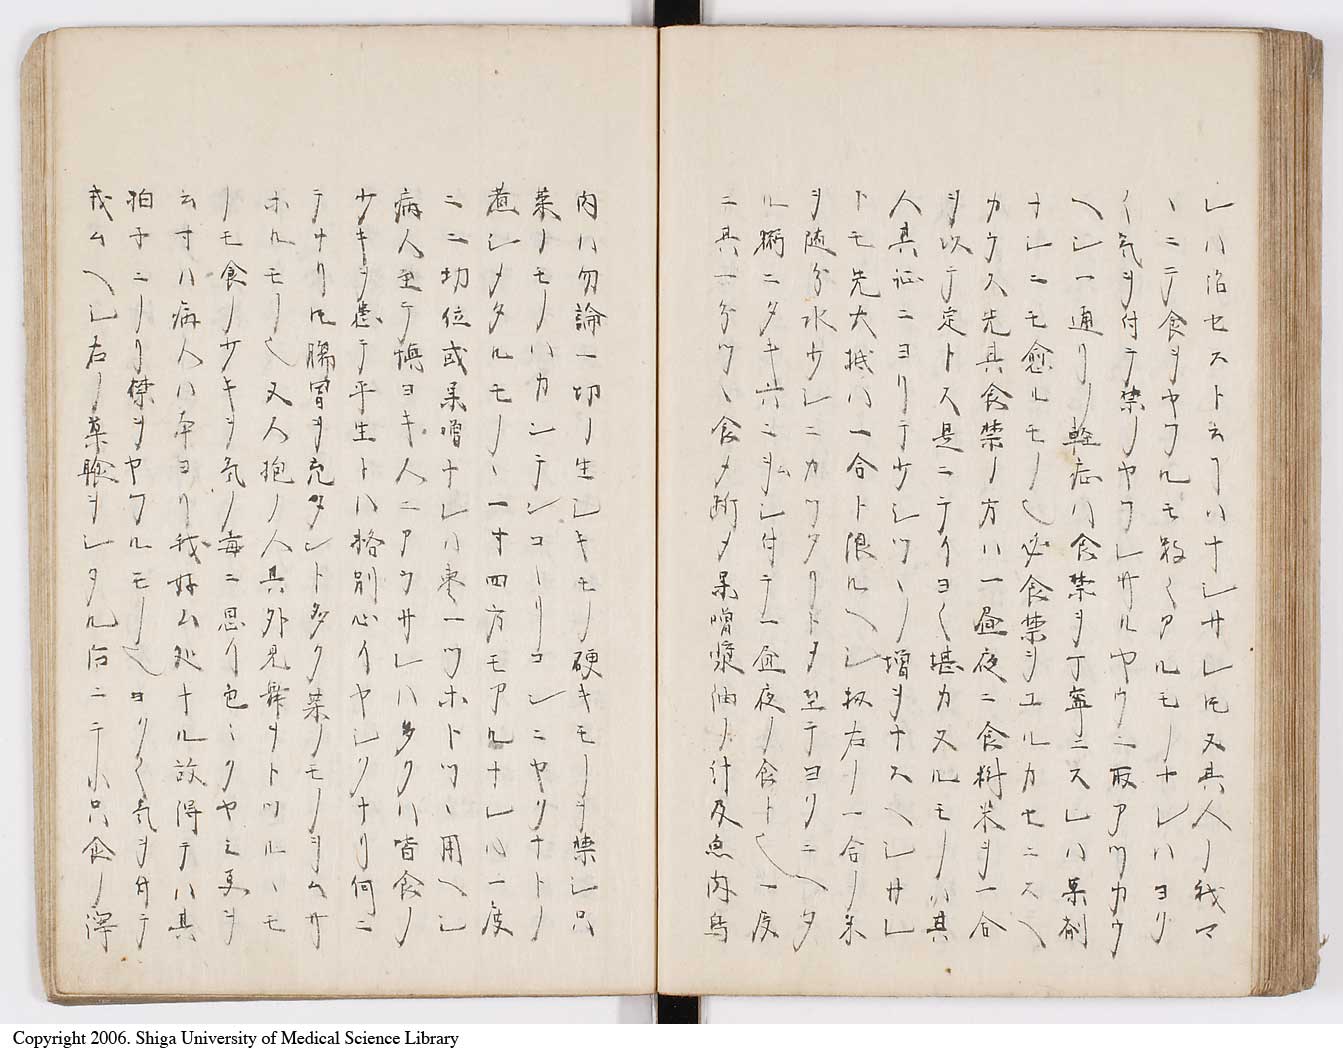 レハ治セスト云リハナシサレ𪜈又其人ノ我マ
ヽニテ食ヲヤフルモ数〻アルモノナレハヨク
〱気ヲ付テ禁ノヤフレサルヤウニ取アツカウ
ヘシ一通リノ軽症ハ食禁ヲ丁寧ニスレハ薬剤
ナシニモ愈ルモノ也必食禁ヲユルカセニスヘ
カラス先其食禁ノ方ハ一昼夜ニ食料米ヲ一合
ヲ以テ定トス是ニテクヨく堪カヌルモノハ其
人其証ニヨリテ少シツヽノ増ヲナスヘシサレ
トモ先大抵ハ一合ト限ルヘシ扨右ノ一合ノ米
ヲ随分水少シニカワクリトタ至テヨリニヘタ
ル粥ニタキ六ニヲシ付テ一昼夜ノ食ト也一度
ニ其一分ツヽ食メ断メ味噌漿油ノ汁及魚肉鳥
内ハ勿論一切ノ生シキモノ硬キモノヲ禁シ只
菜ノモノハカンテンコーリコンニヤクナトノ
煮シメタルモノヽ一寸四方モアルナレハ一度
ニ二切位或味噌ナレハ棗一ツホトツヽ用ヘシ
病人至テ慎ヨキ人ニアラサレハ多クハ皆食ノ
少キヲ患テ平生トハ格別心イヤシクナリ何ニ
テナリ𪜈腸胃ヲ充タレト多ク菜ノモノヲムサ
ホルモノ也又人抱ノ人其外見舞ヲトツルヽモ
ノモ食ノ少キヲ気ノ毒ニ思ク色ミクヤミ夏ヲ
云寸ハ病人ハ本ヨリ我好ム処ナル故得テハ其
拍子ニノリ禁ヲヤフルモノ也ヨク〱気ヲ付テ
戎ムヘシ右ノ薬服ヲシタル后ニテ小只食ノ滞
Copyright 2006. Shiga University of Medical Science Library